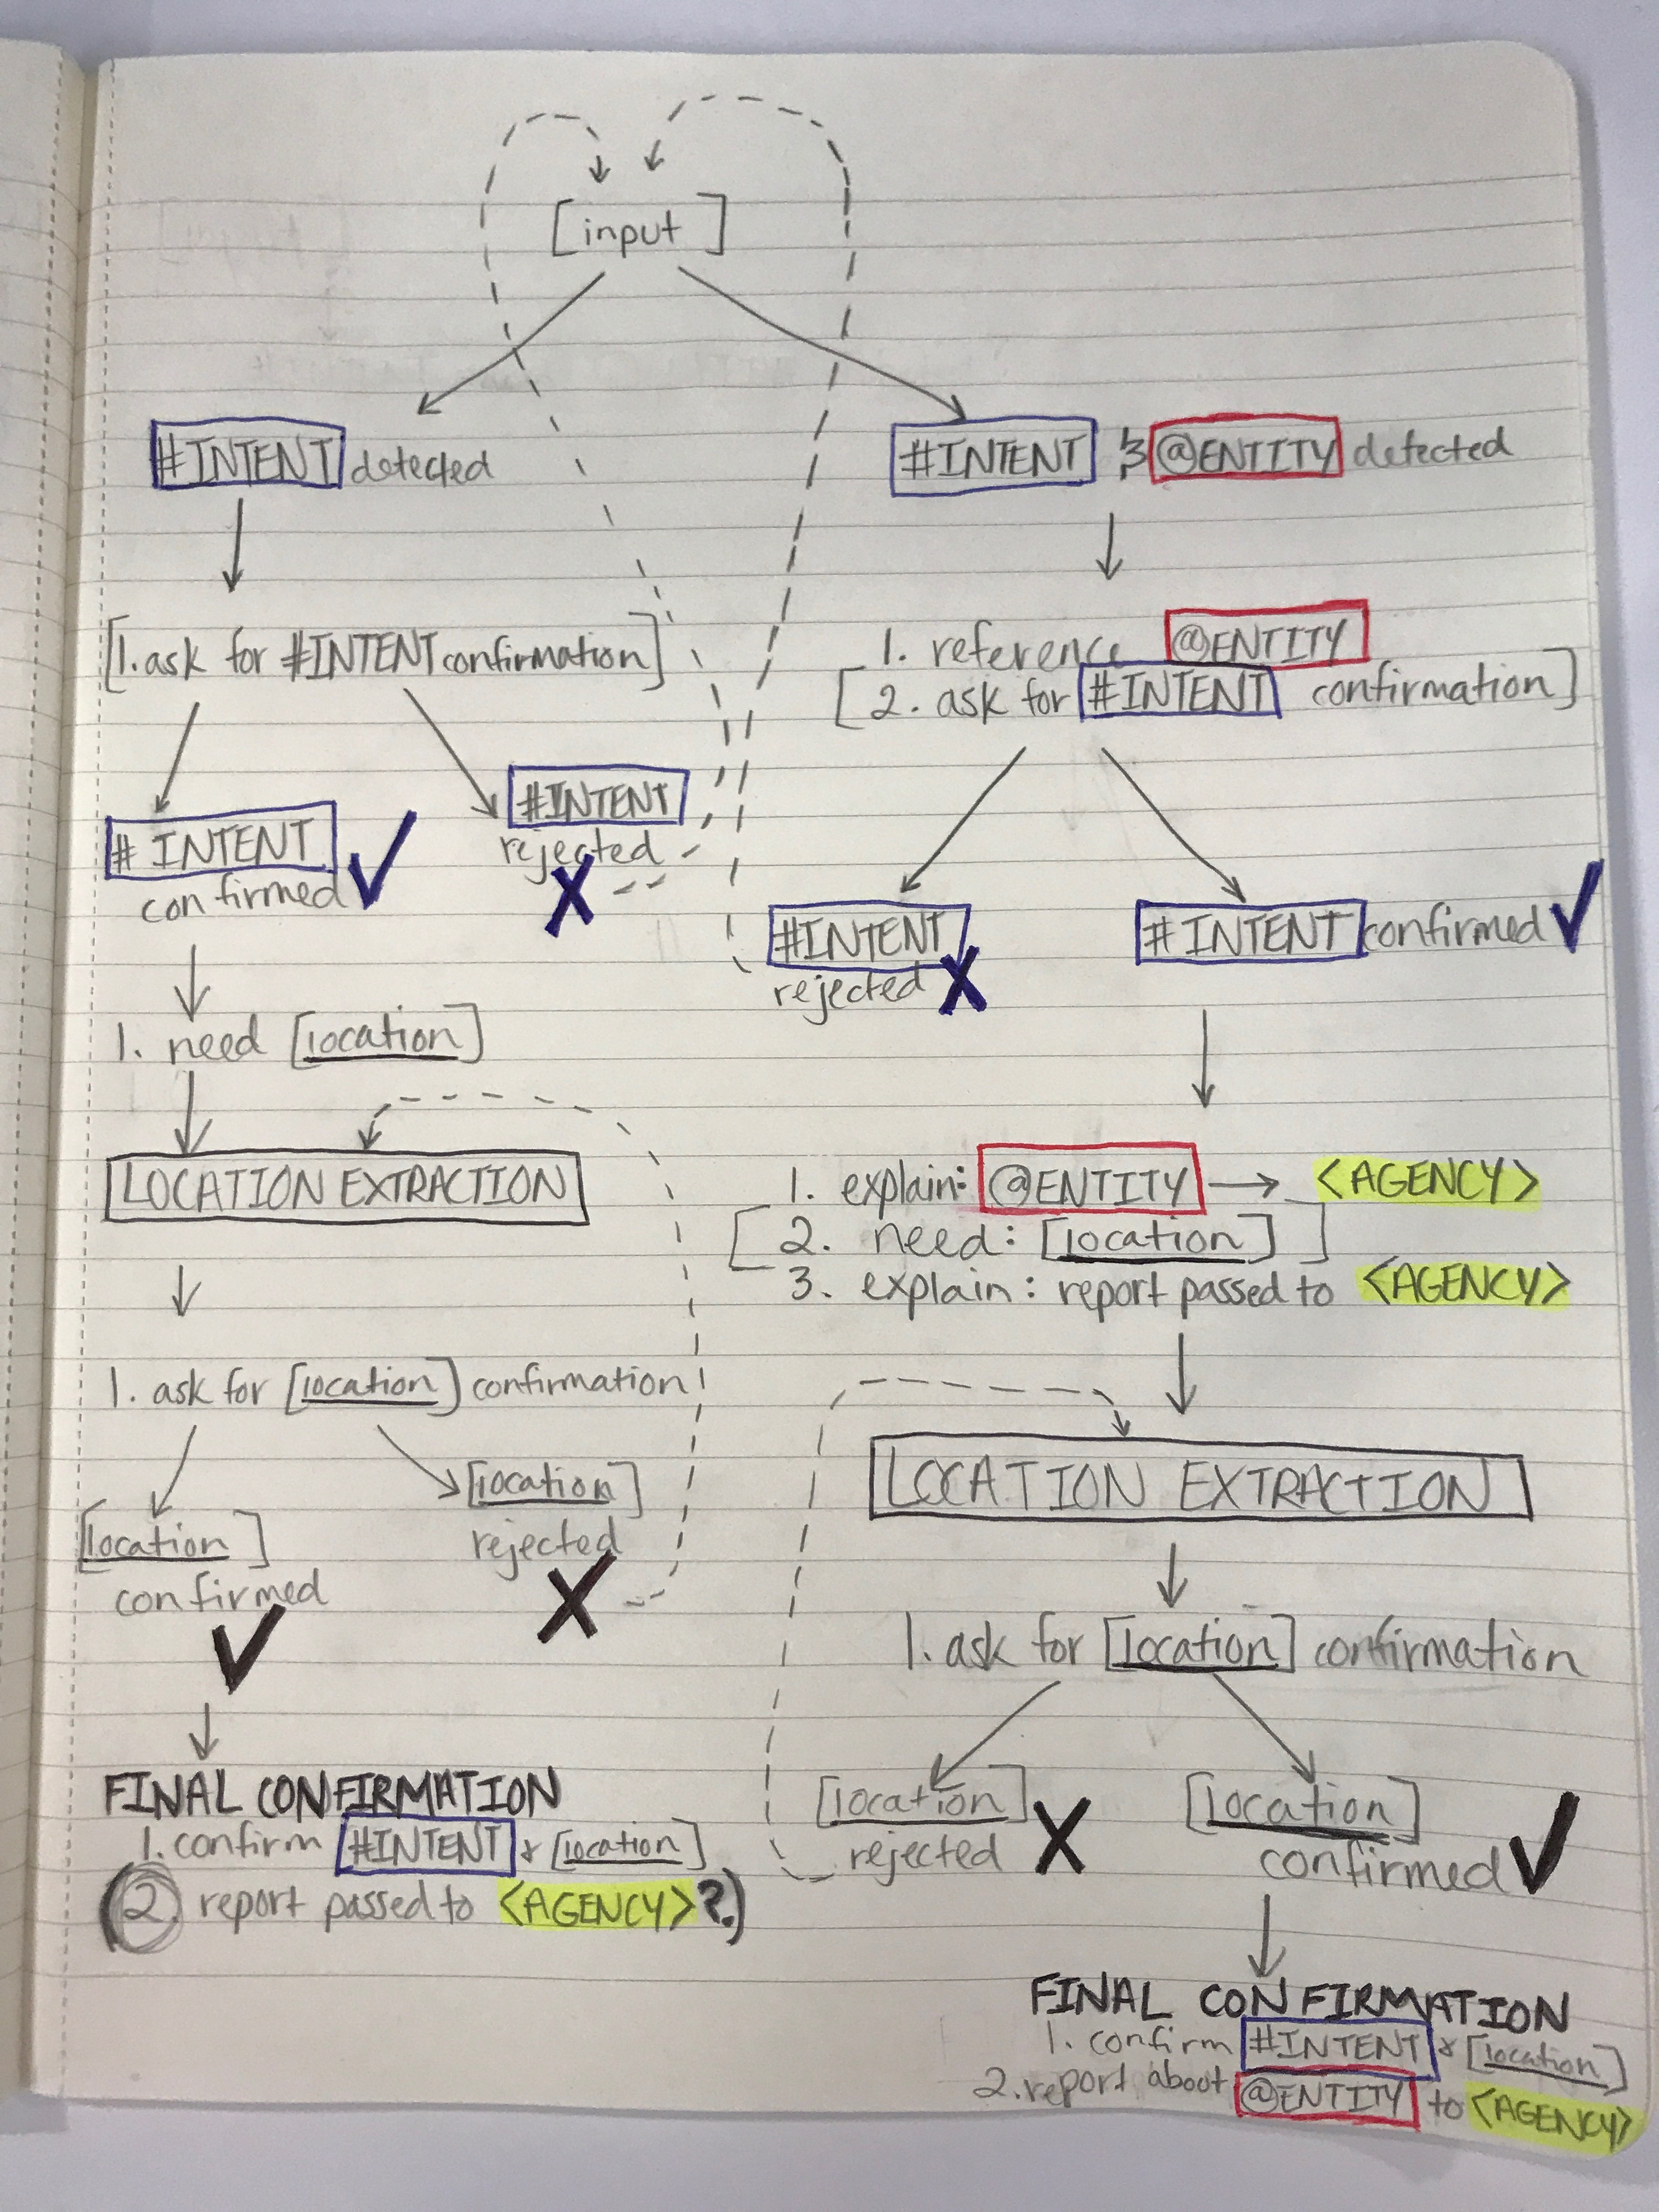 [input]
#INTENT detected
[1. ask for #INTENT confirmation]
#INTENT
confirmed
#INTENT
rejected
1. need [location]
LOCATION EXTRACTION
1. ask for [location] confirmation
[location]
confirmed
[location]
rejected
FINAL CONFIRMATION
1. confirm #INTENT & [location]
(2. report passed to <AGENCY>?)
#INTENT & @ENTITY detected
1. reference @ENTITY
[2. ask for #INTENT confirmation]
#INTENT
rejected
#INTENT confirmed
1. explain: @ENTITY → <AGENCY>
[2. need: [location]]
3. explain: report passed to <AGENCY>
LOCATION EXTRACTION
1. ask for [location] confirmation
[location]
rejected
[location]
confirmed
FINAL CONFIRMATION
1. confirm #INTENT & [location]
2. report about @ENTITY to <AGENCY>